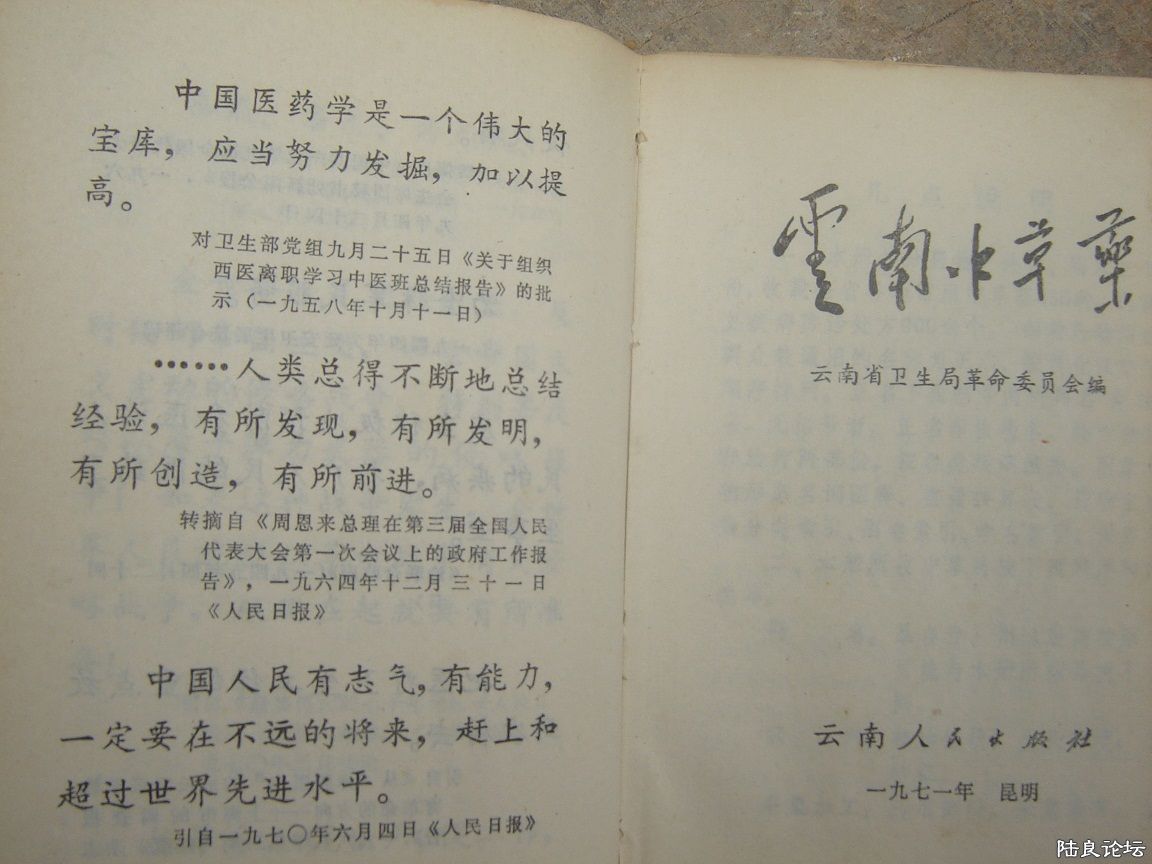 中国医药学是一个伟大的
宝库，应当努力发掘，加以提
高。
对卫生部党组九月二十五日《关于组织
西医离职学习中医班总结报告》的批
示（一九五八年十月十一日）
……人类总得不断地总结
经验，有所发现，有所发明，
有所创造，有所前进。
转摘自《周恩来总理在第三届全国人民
代表大会第一次会议上的政府工作报
告》，一九六四年十二月三十一日
《人民日报》
中国人民有志气，有能力，
一定要在不远的将来，赶上和
超过世界先进水平。
引自一九七〇年六月四日《人民日报》
雲南中草藥
云南省卫生局革命委员会编
云南人民出版社
一九七一年 昆明
陆良论坛